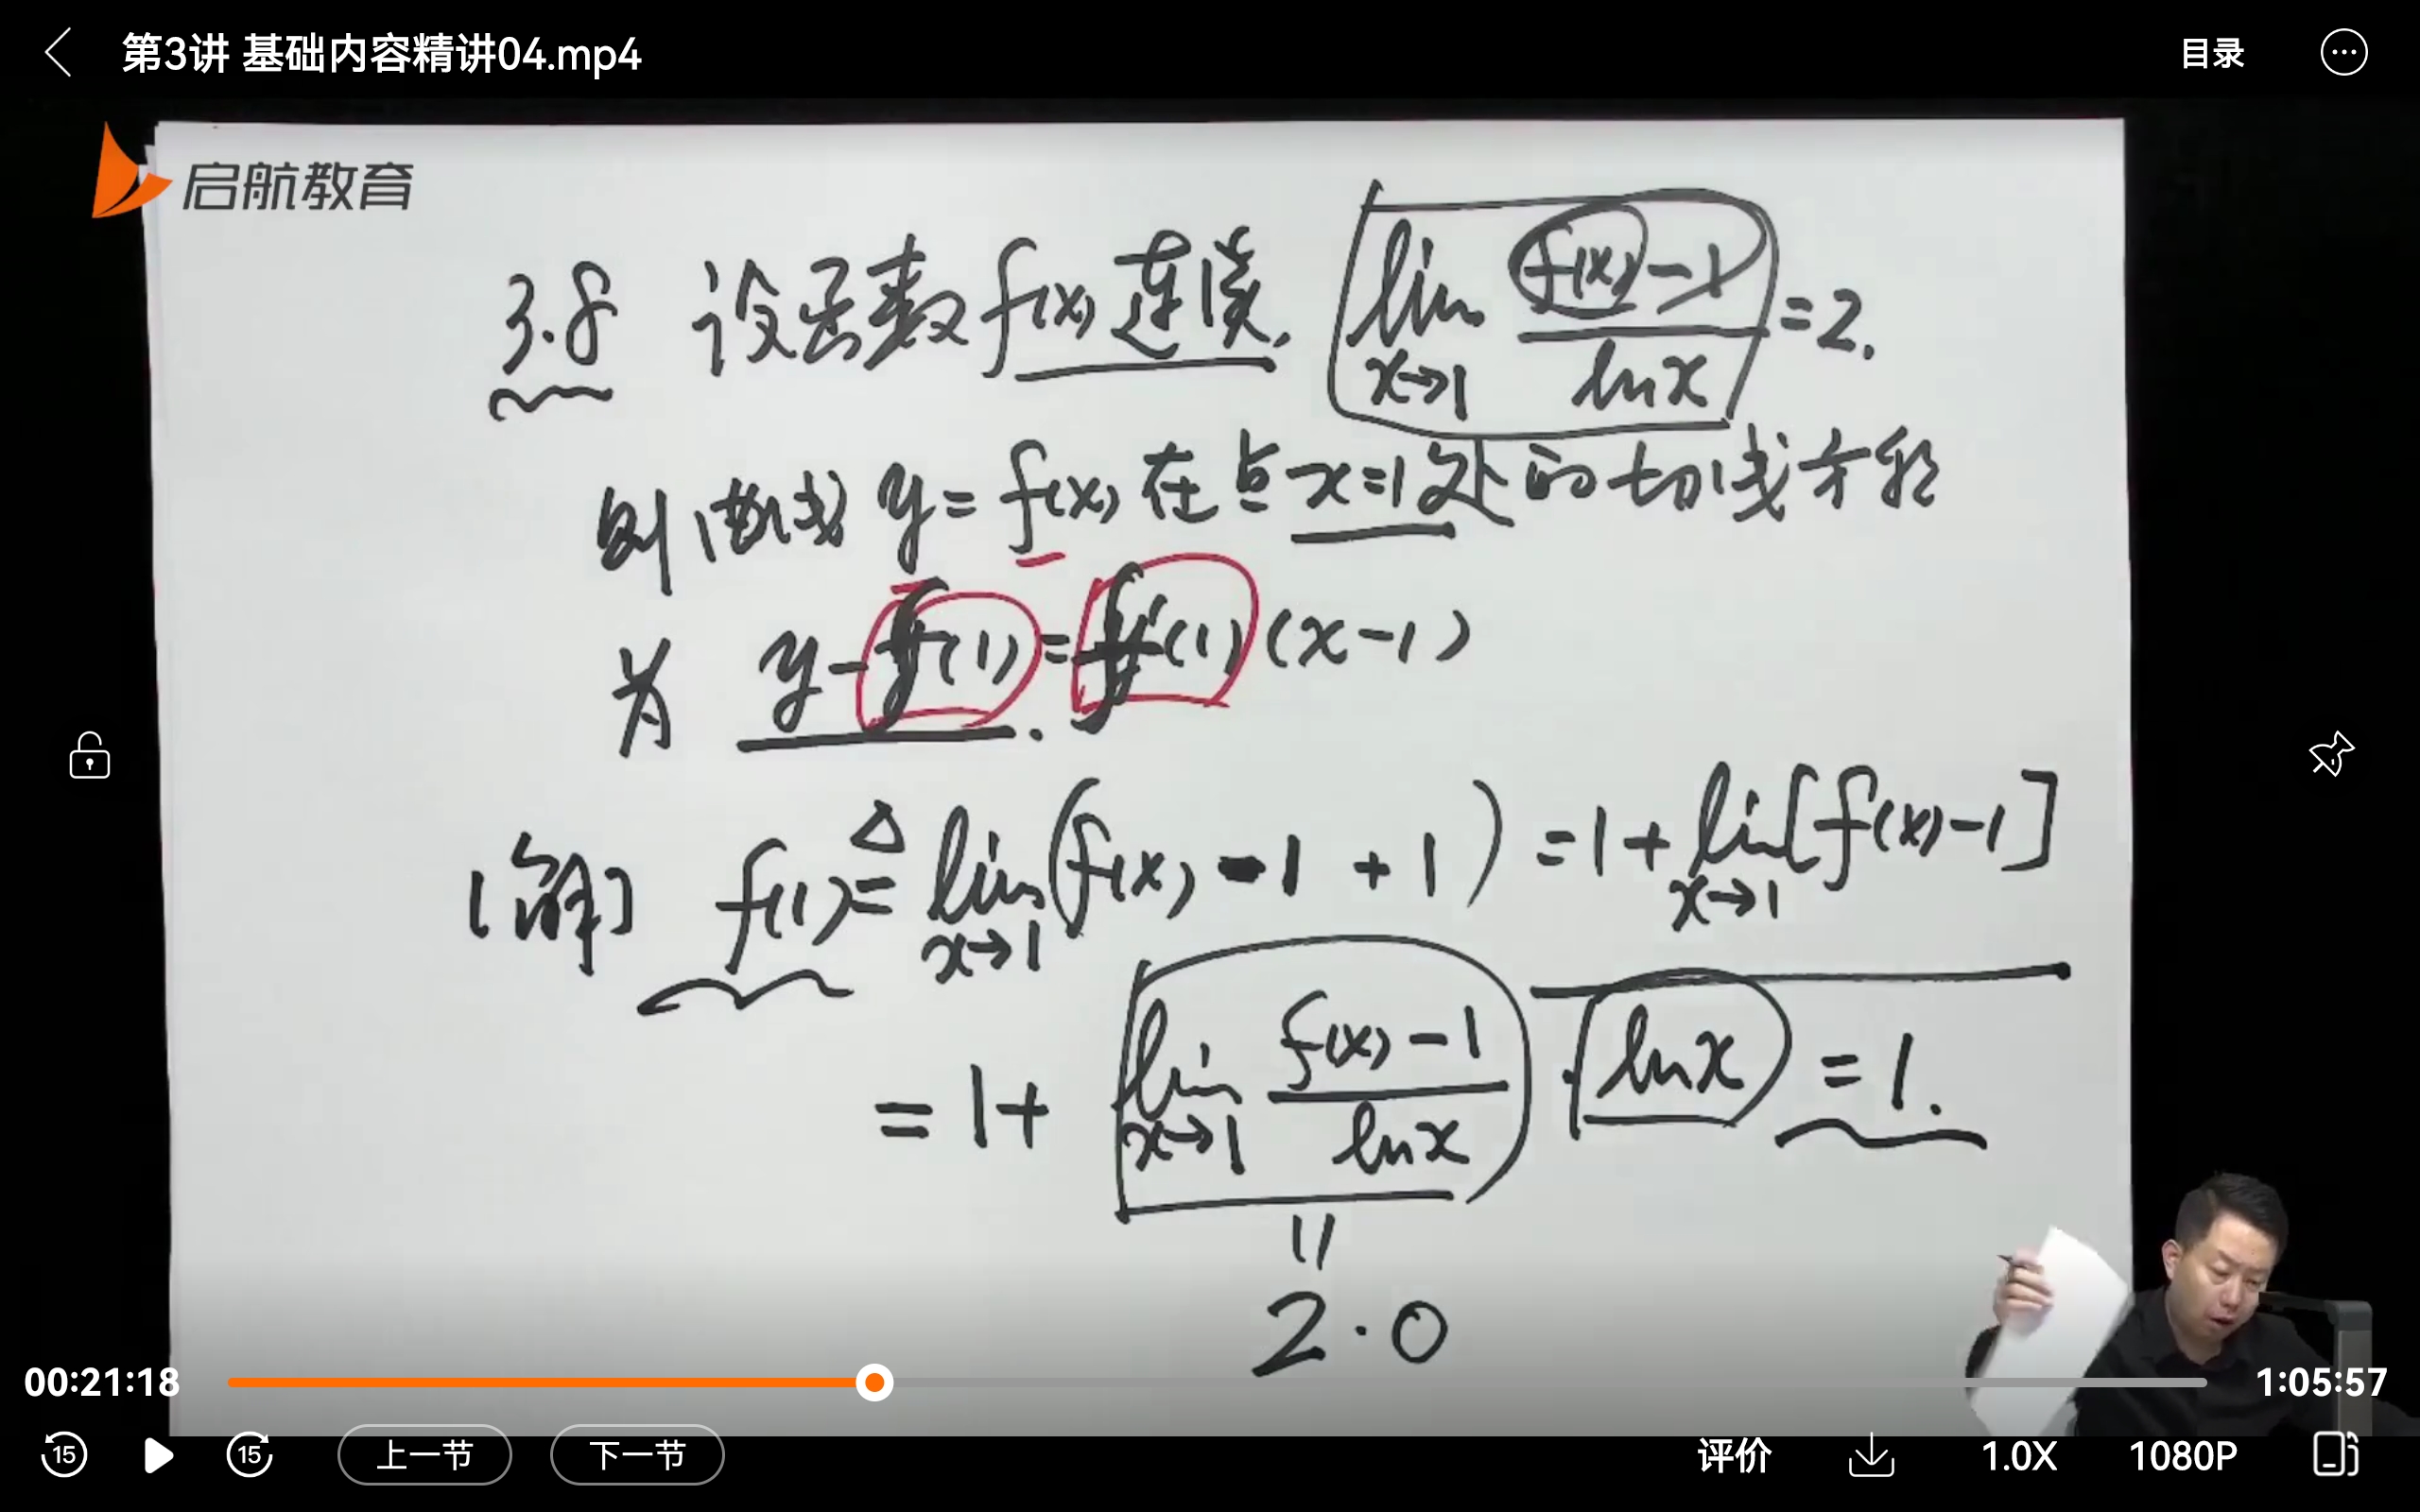 第3讲 基础内容精讲04.mp4
目录
启航教育
3.8 设函数f(x)连续. lim x→1 (f(x)-1)/lnx =2.
则曲线 y=f(x) 在点x=1处的切线方程
为 y-f(1)=f'(1)(x-1)
[解] f(1)≜lim x→1 (f(x)-1+1)=1+lim x→1 [f(x)-1]
=1+ lim x→1 (f(x)-1)/lnx · lnx =1.
=
2·0
00:21:18
1:05:57
15
15
上一节
下一节
评价
1.0X
1080P